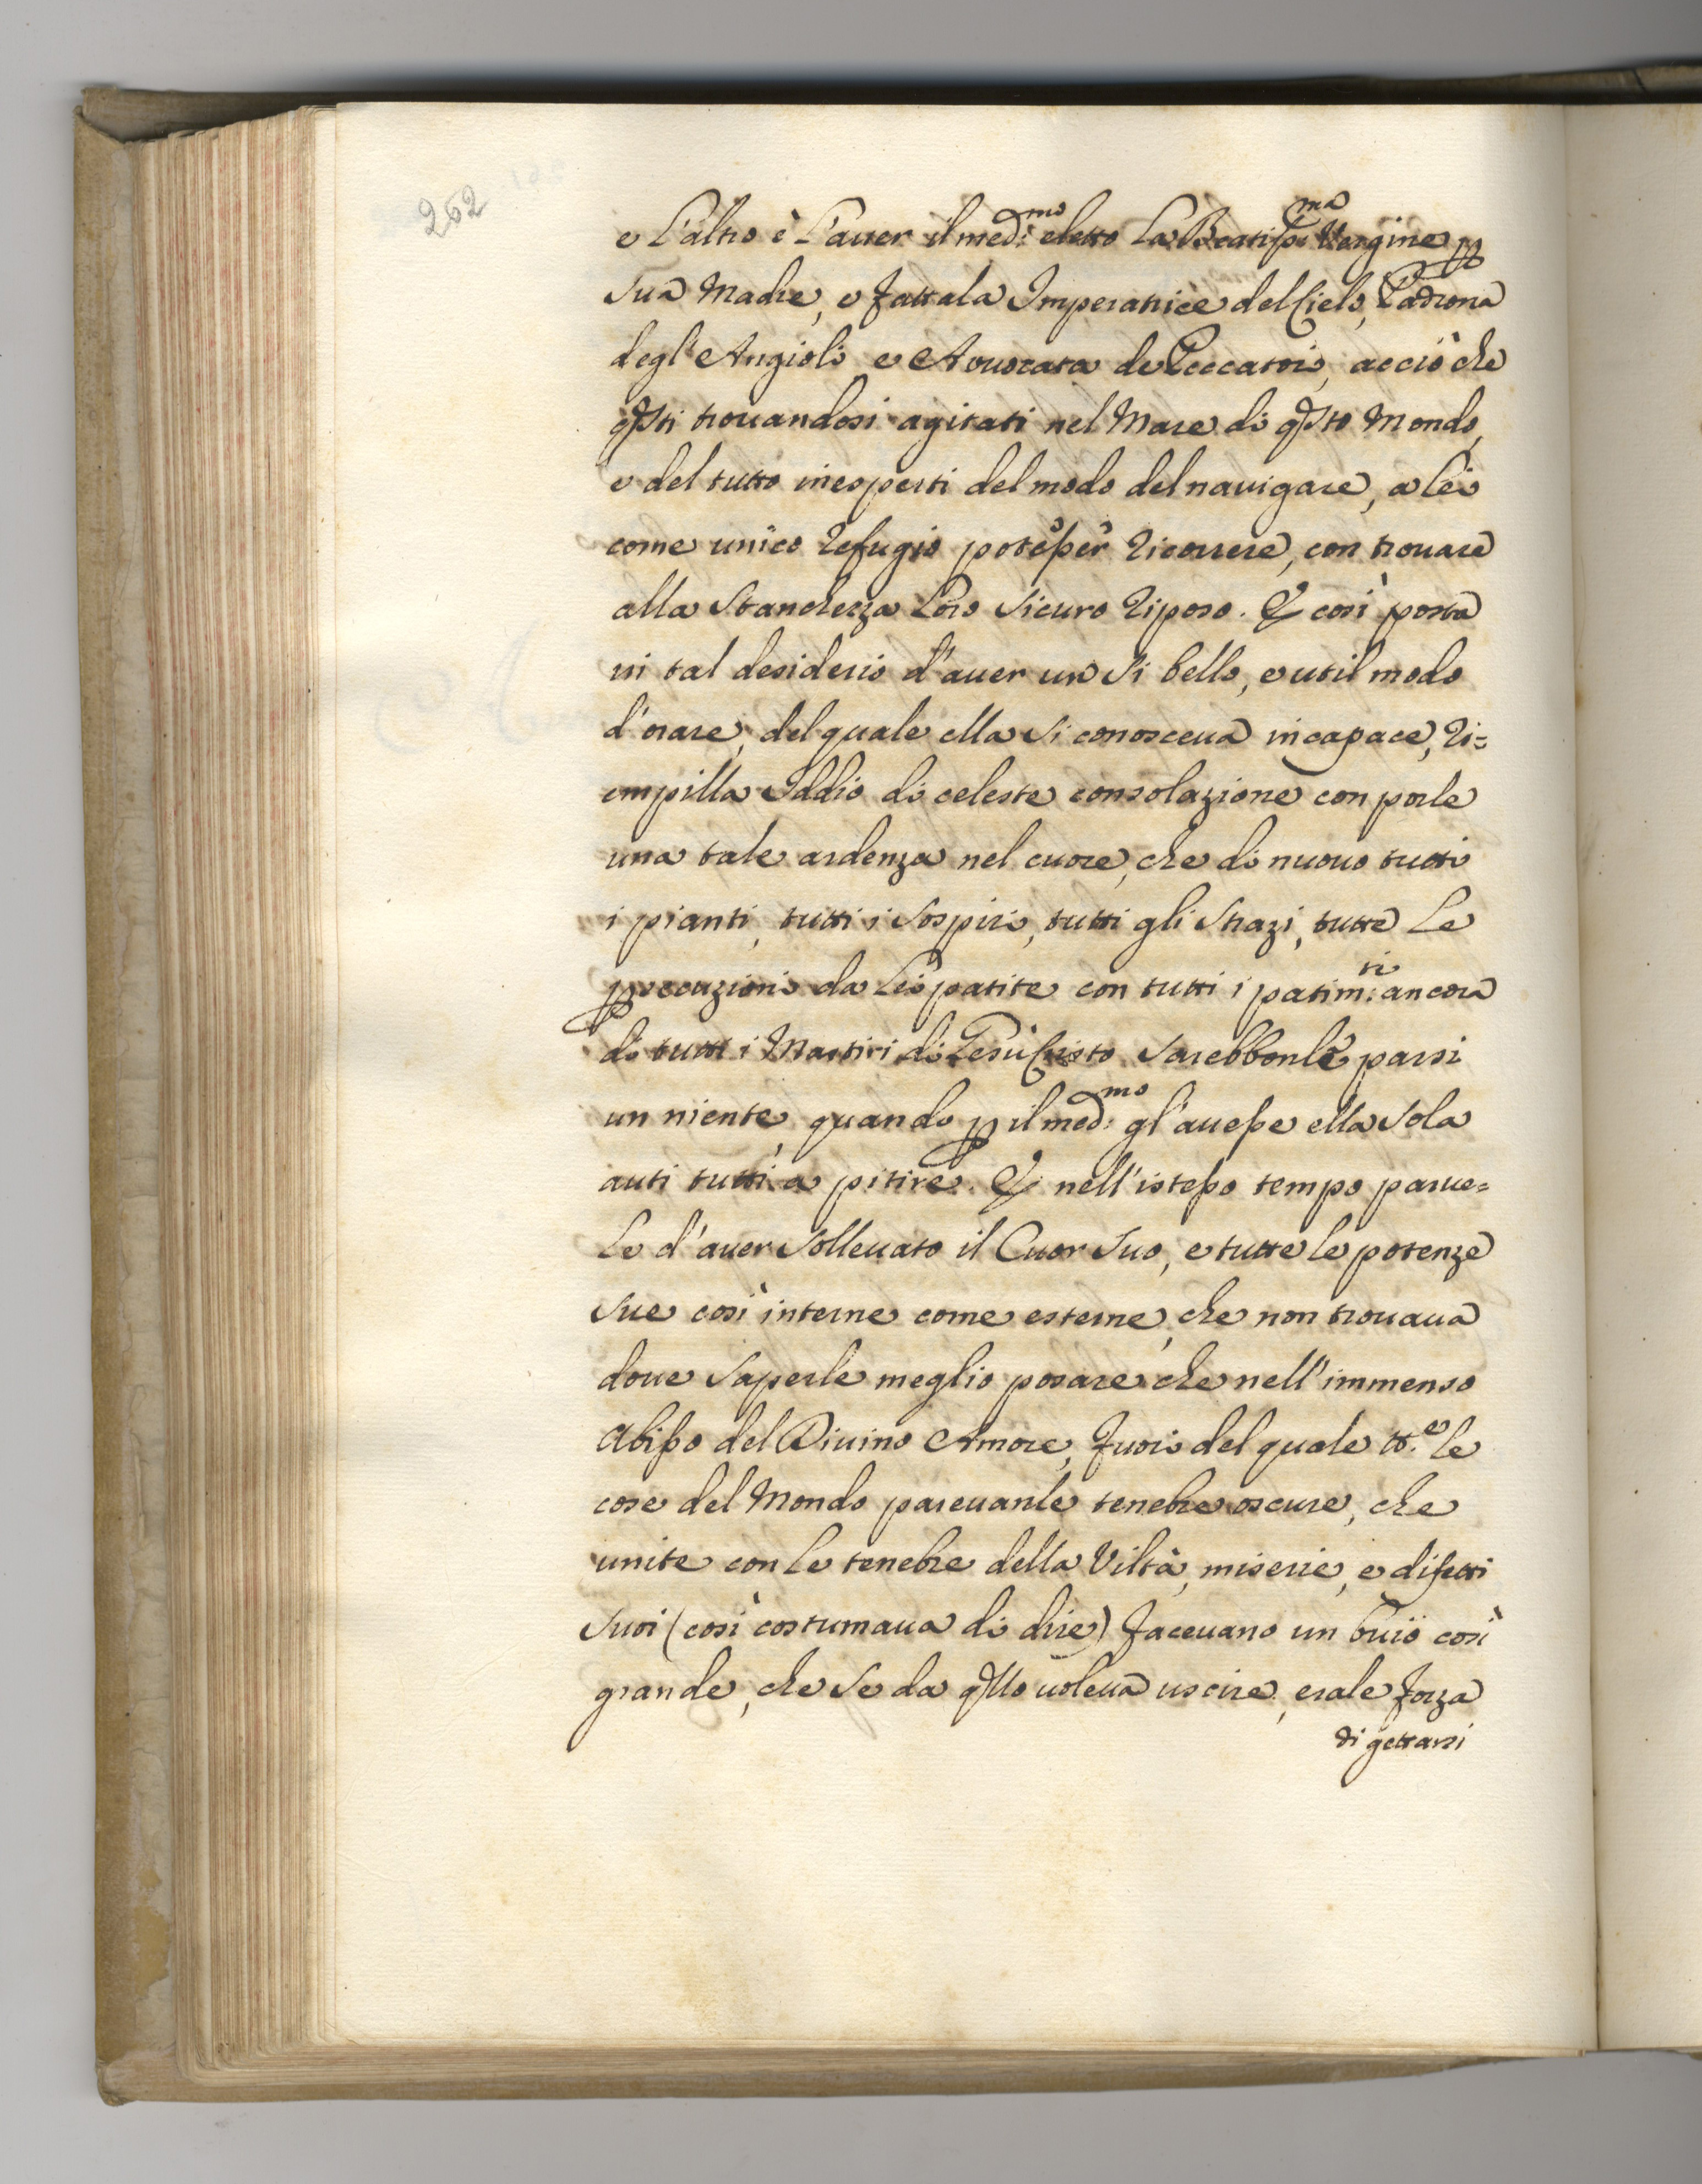 262
e l'altro è l'auer il med:mo eletto la Beatiss:ma Vergine p
sua Madre, e fattala Imperatrice del Cielo, Padrona
degl'Angioli, e Avuocata de Peccatori, acciò che
qsti trouandosi agitati nel Mare di qsto Mondo,
e del tutto inesperti del modo del nauigare, a lei
come unico refugio potesser ricorrere, con trouare
alla stanchezza loro sicuro riposo. E così posta
in tal desiderio d'auer un sì bello, e util modo
d'orare, del quale ella si conosceua incapace, ri=
empilla Iddio di celeste consolazione con porle
una tale ardenza nel cuore, che di nuouo tutti
i pianti, tutti i sospiri, tutti gli strazi, tutte le
psecuzioni da lei patite con tutti i patim:ti ancora
di tutti i Martiri di Gesù Cristo sarebbonle parsi
un niente, quando p il med:mo gl'auesse ella sola
auti tutti a pitire. E nell'istesso tempo parue=
le d'auer solleuato il Cuor suo, e tutte le potenze
sue così interne come esterne, che non trouaua
doue saperle meglio posare che nell'immenso
Abisso del Diuino Amore, fuori del quale tt.e le
cose del Mondo pareuanle tenebre oscure, che
unite con le tenebre della Viltà, miserie, e difetti
suoi (così costumaua di dire) faceuano un buio così
grande, che se da qsto uoleua uscire, erale forza
di gettarsi